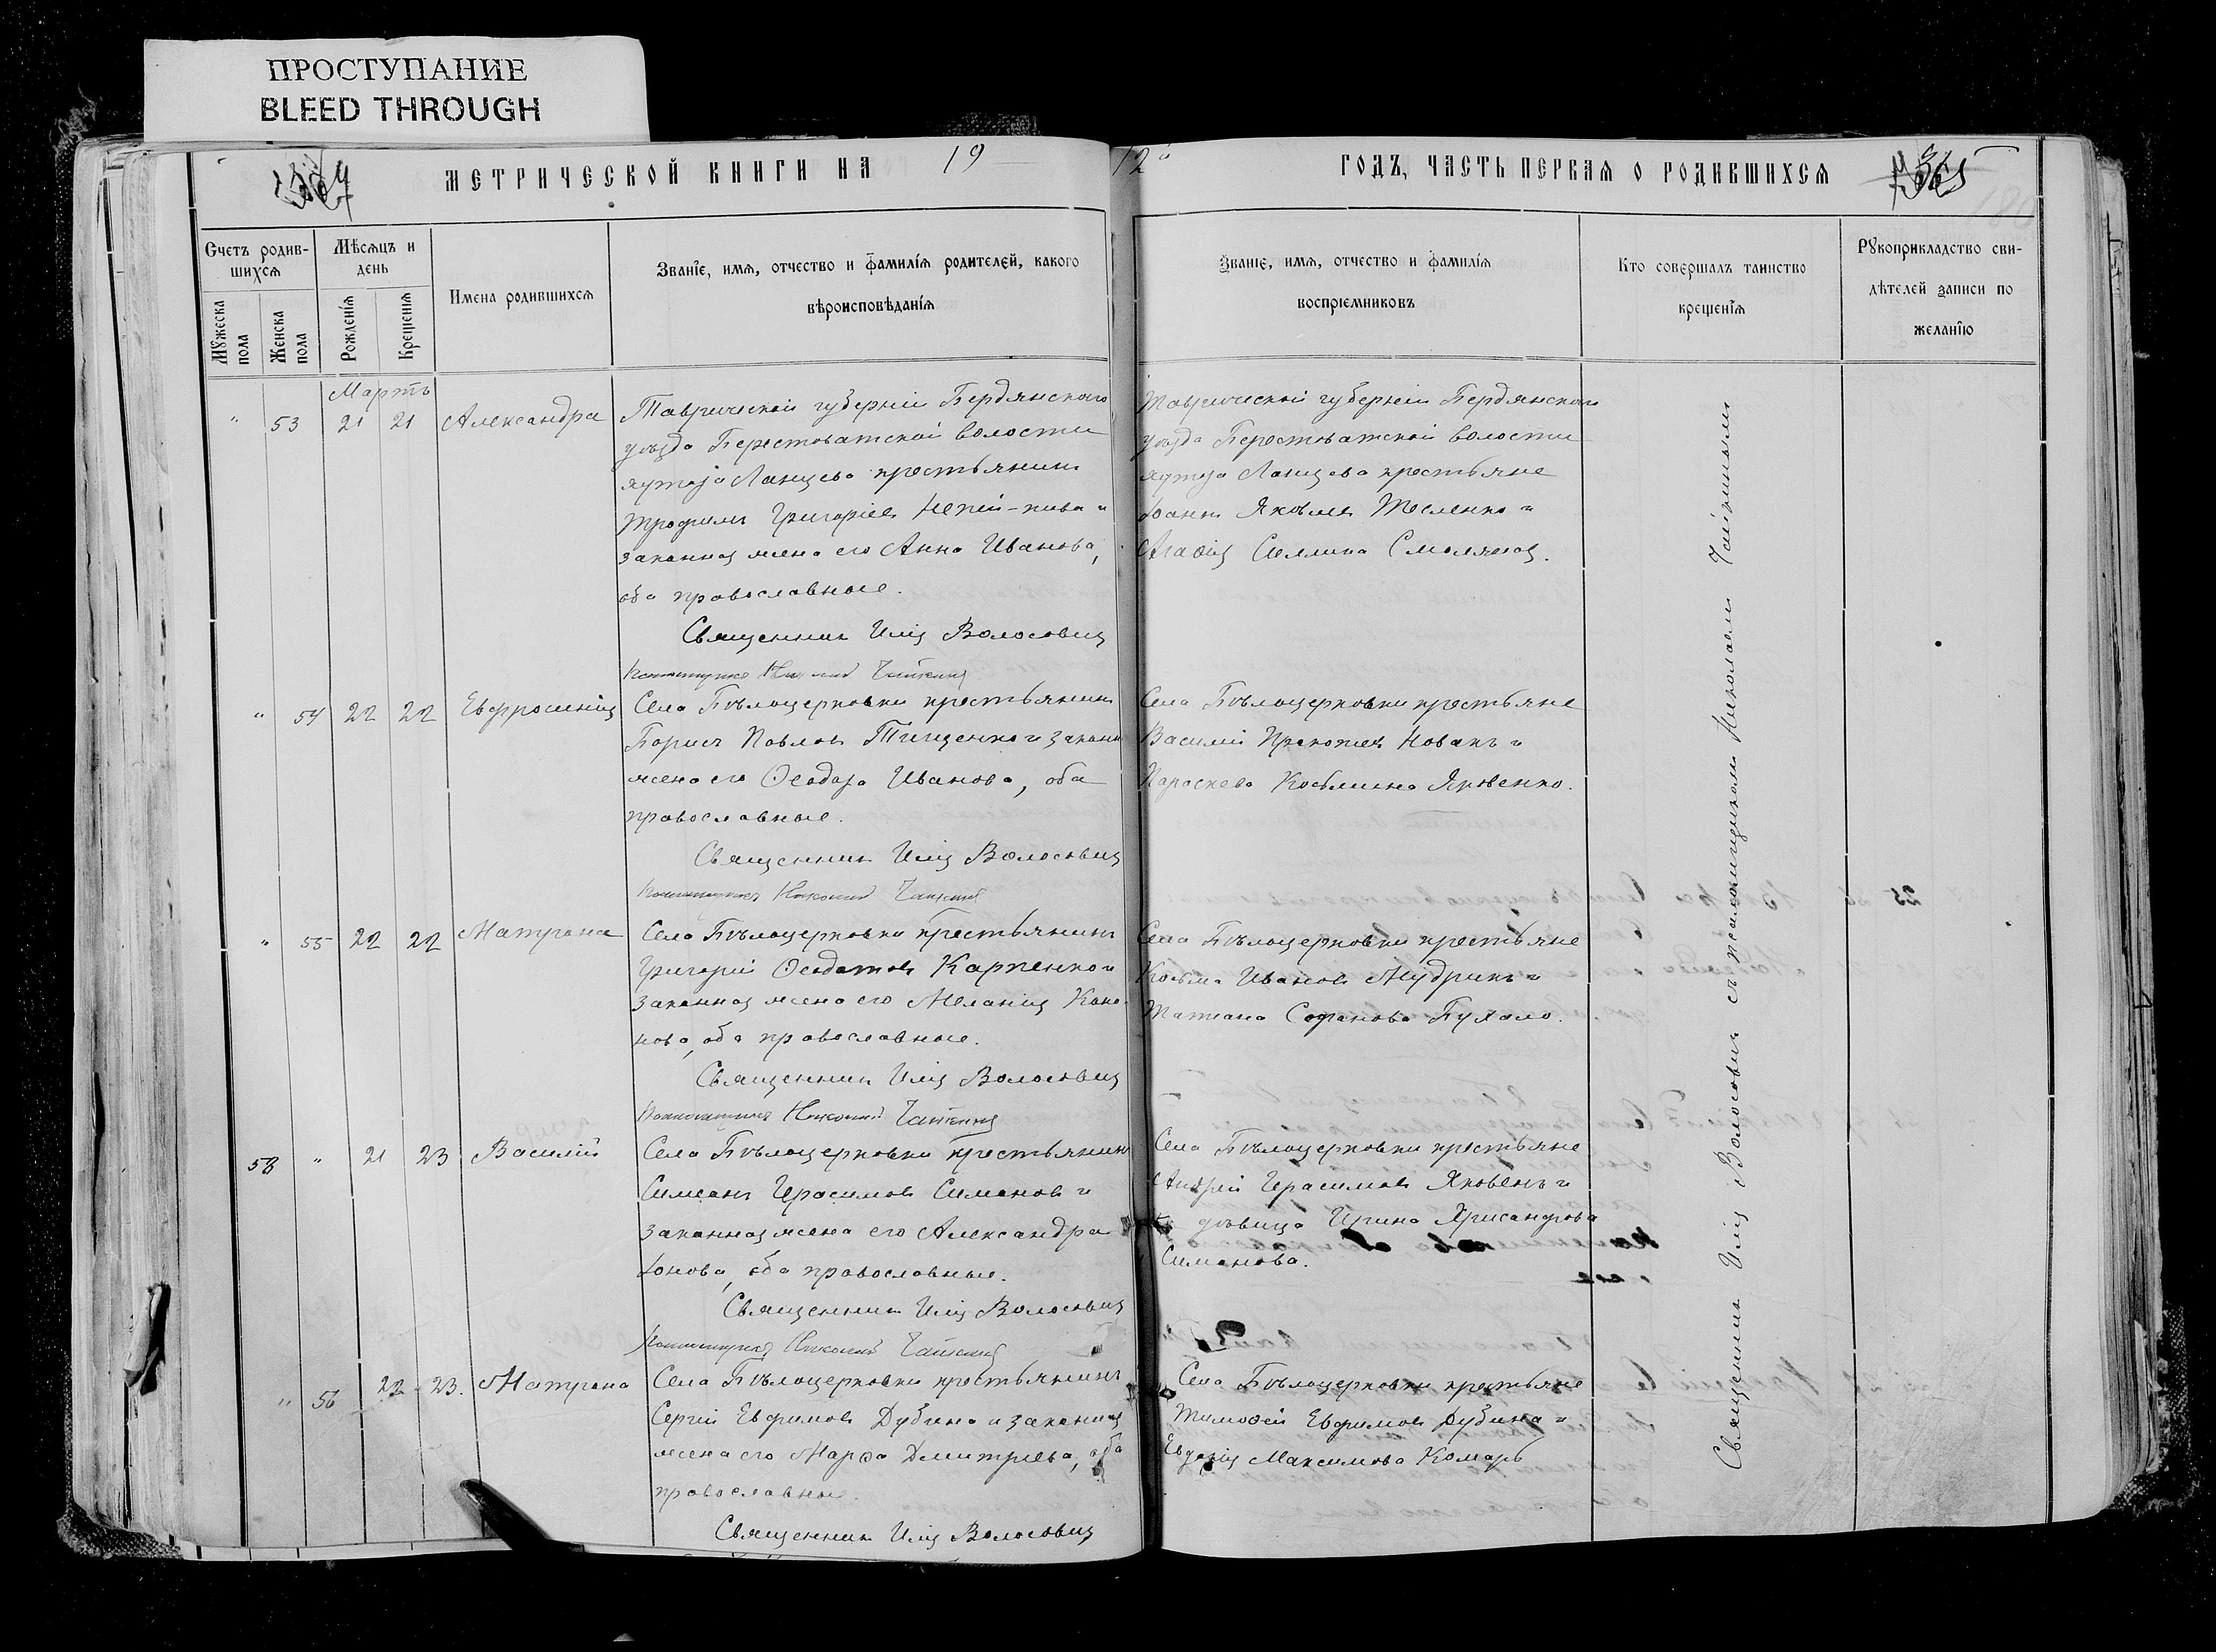 ПРОСТУПАНИЕ
BLEED THROUGH
МЕТРИЧЕСКОЙ КНИГИ НА 19
12 ГОДЪ, ЧАСТЬ ПЕРВАЯ О РОДИВШИХСЯ 365
Счетъ родив-
шихся
Мужеска пола
Женска пола
Мѣсяцъ и
день
Рожденія
Крещенія
Имена родившихся
Званіе, имя, отчество и фамилія родителей, какого
вѣроисповѣданія
Званіе, имя, отчество и фамилія
воспріемниковъ
Кто совершалъ таинство
крещенія
Рукоприкладство сви-
дѣтелей записи по
желанію
Мартъ
" 53 21 21 Александра
Таврической губерніи Бердянскаго
уѣзда Берестоватской волости
хутора Ланцева крестьянинъ
Трофимъ Григоріевъ Непій-пива и
законная жена его Анна Иванова,
оба православные.
Священникъ Илія Волосовичъ
Таврической губерніи Бердянскаго
уѣзда Берестоватской волости
хутора Ланцева крестьяне
Іоаннъ Яковлевъ Тесленко и
Агафія
" 54 22 22 Евфросинія
Села Бѣлоцерковки крестьянинъ
Борисъ Павловъ Тищенко и законн.
жена его Ѳеодора Иванова, оба
православные.
Священникъ Илія Волосовичъ
Николай Чайкинъ
Села Бѣлоцерковки крестьяне
Василій Прокопіевъ Новакъ и
Параскева Косьмина Яковенко.
" 55 22 22 Матрона
Села Бѣлоцерковки крестьянинъ
Григорій Ѳеодотовъ Карпенко и
законная жена его Меланія Коно-
нова, оба православные.
Священникъ Илія Волосовичъ
Николай Чайкинъ
Села Бѣлоцерковки крестьяне
Косьма Ивановъ Мудрикъ и
Татіана
58 " 21 23 Василій
Села Бѣлоцерковки крестьянинъ
Симеонъ Герасимовъ Симоновъ и
законная жена его Александра
Іонова, оба православные.
Священникъ Илія Волосовичъ
Николай Чайкинъ
Села Бѣлоцерковки крестьяне
Андрей Герасимовъ Яковенъ и
дѣвица Ирина Хрисанфова
Симонова.
" 56 22 23. Матрона
Села Бѣлоцерковки крестьянинъ
Сергій Евфимовъ Дубина и законная
жена его Марфа Дмитріева, оба
православные.
Священникъ Илія Волосовичъ
Села Бѣлоцерковки крестьяне
Тимоѳей Евфимовъ Дубина и
Евдокія Максимова Комаръ
Священникъ Илія Волосовичъ съ псаломщикомъ Николаемъ Чайкинымъ